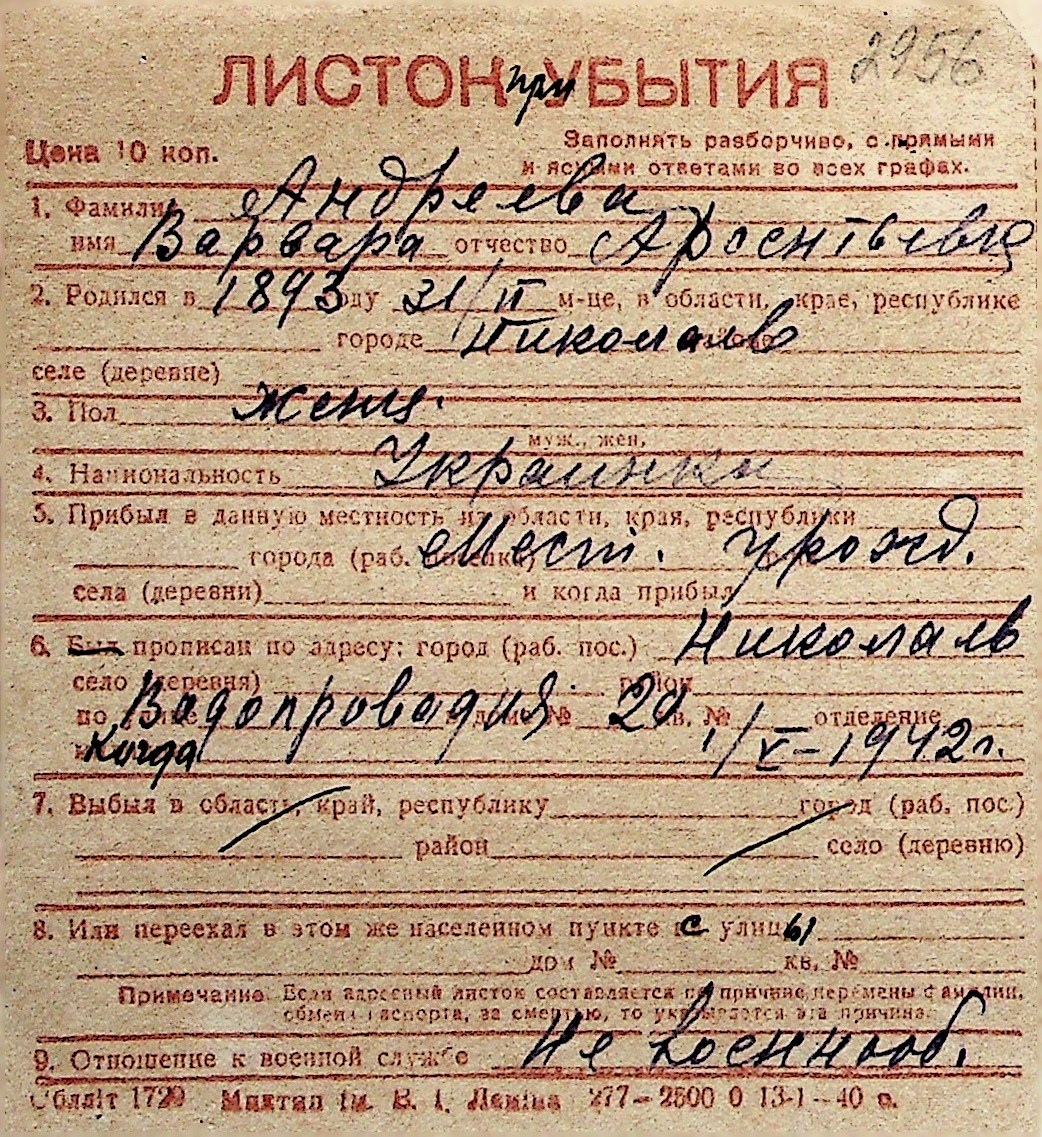 2956
ЛИСТОК при УБЫТИЯ
Цена 10 коп.
Заполнять разборчиво, с прямыми
и ясными ответами во всех графах.
1. Фамилия Андреева
имя Варвара отчество Арсентьевна
2. Родился в 1893 году 31/II м-це, в области, крае, республике
городе Николаев
селе (деревне)
3. Пол женщ.
муж., жен,
4. Национальность Украинка
5. Прибыл в данную местность из области, края, республики
города (раб. поселка) Мест. урожд.
села (деревни) и когда прибыл
6. Был прописан по адресу: город (раб. пос.) Николаев
село (деревня) район
по Вадопровадия дом № 20 кв. № отделение
Когда 1/V-1942 г.
7. Выбыл в область, край, республику город (раб. пос.)
район село (деревню)
8. Или переехал в этом же населенном пункте с улицы
дом № кв. №
Примечание. Если адресный листок составляется по причине перемены фамилии,
обмена паспорта, за смертью, то указывается эта причина.
9. Отношение к военной службе Не военнооб.
Обллiт 1729 Миктип iм. В. I. Ленiна 277-2500 0 13-1-40 р.